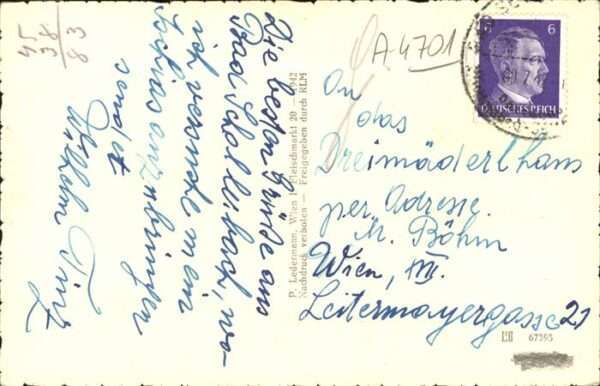 45
38
83
A.4701
6
DEUTSCHES REICH
Die besten Grüße aus
Bad Schallerbach, wo-
ich versuche mein
Ischias anzubringen
sendet
Wilhelm
P. Ledermann, Wien I, Fleischmarkt 20 — 1942
Nachdruck verboten — Freigegeben durch RLM
An
das
Dreimäderlhaus
per Adresse
M. Böhm
Wien,
Leitermayergasse 21
67395